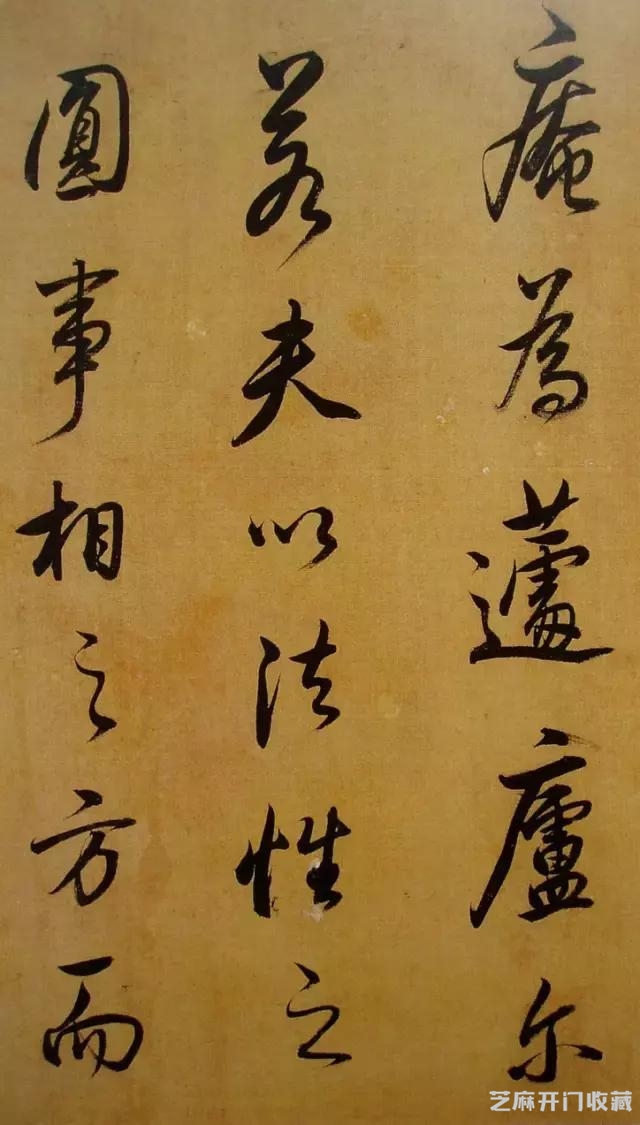 庵為蘧廬尔
若夫以法性之
圓事相之方而
芝麻开门收藏